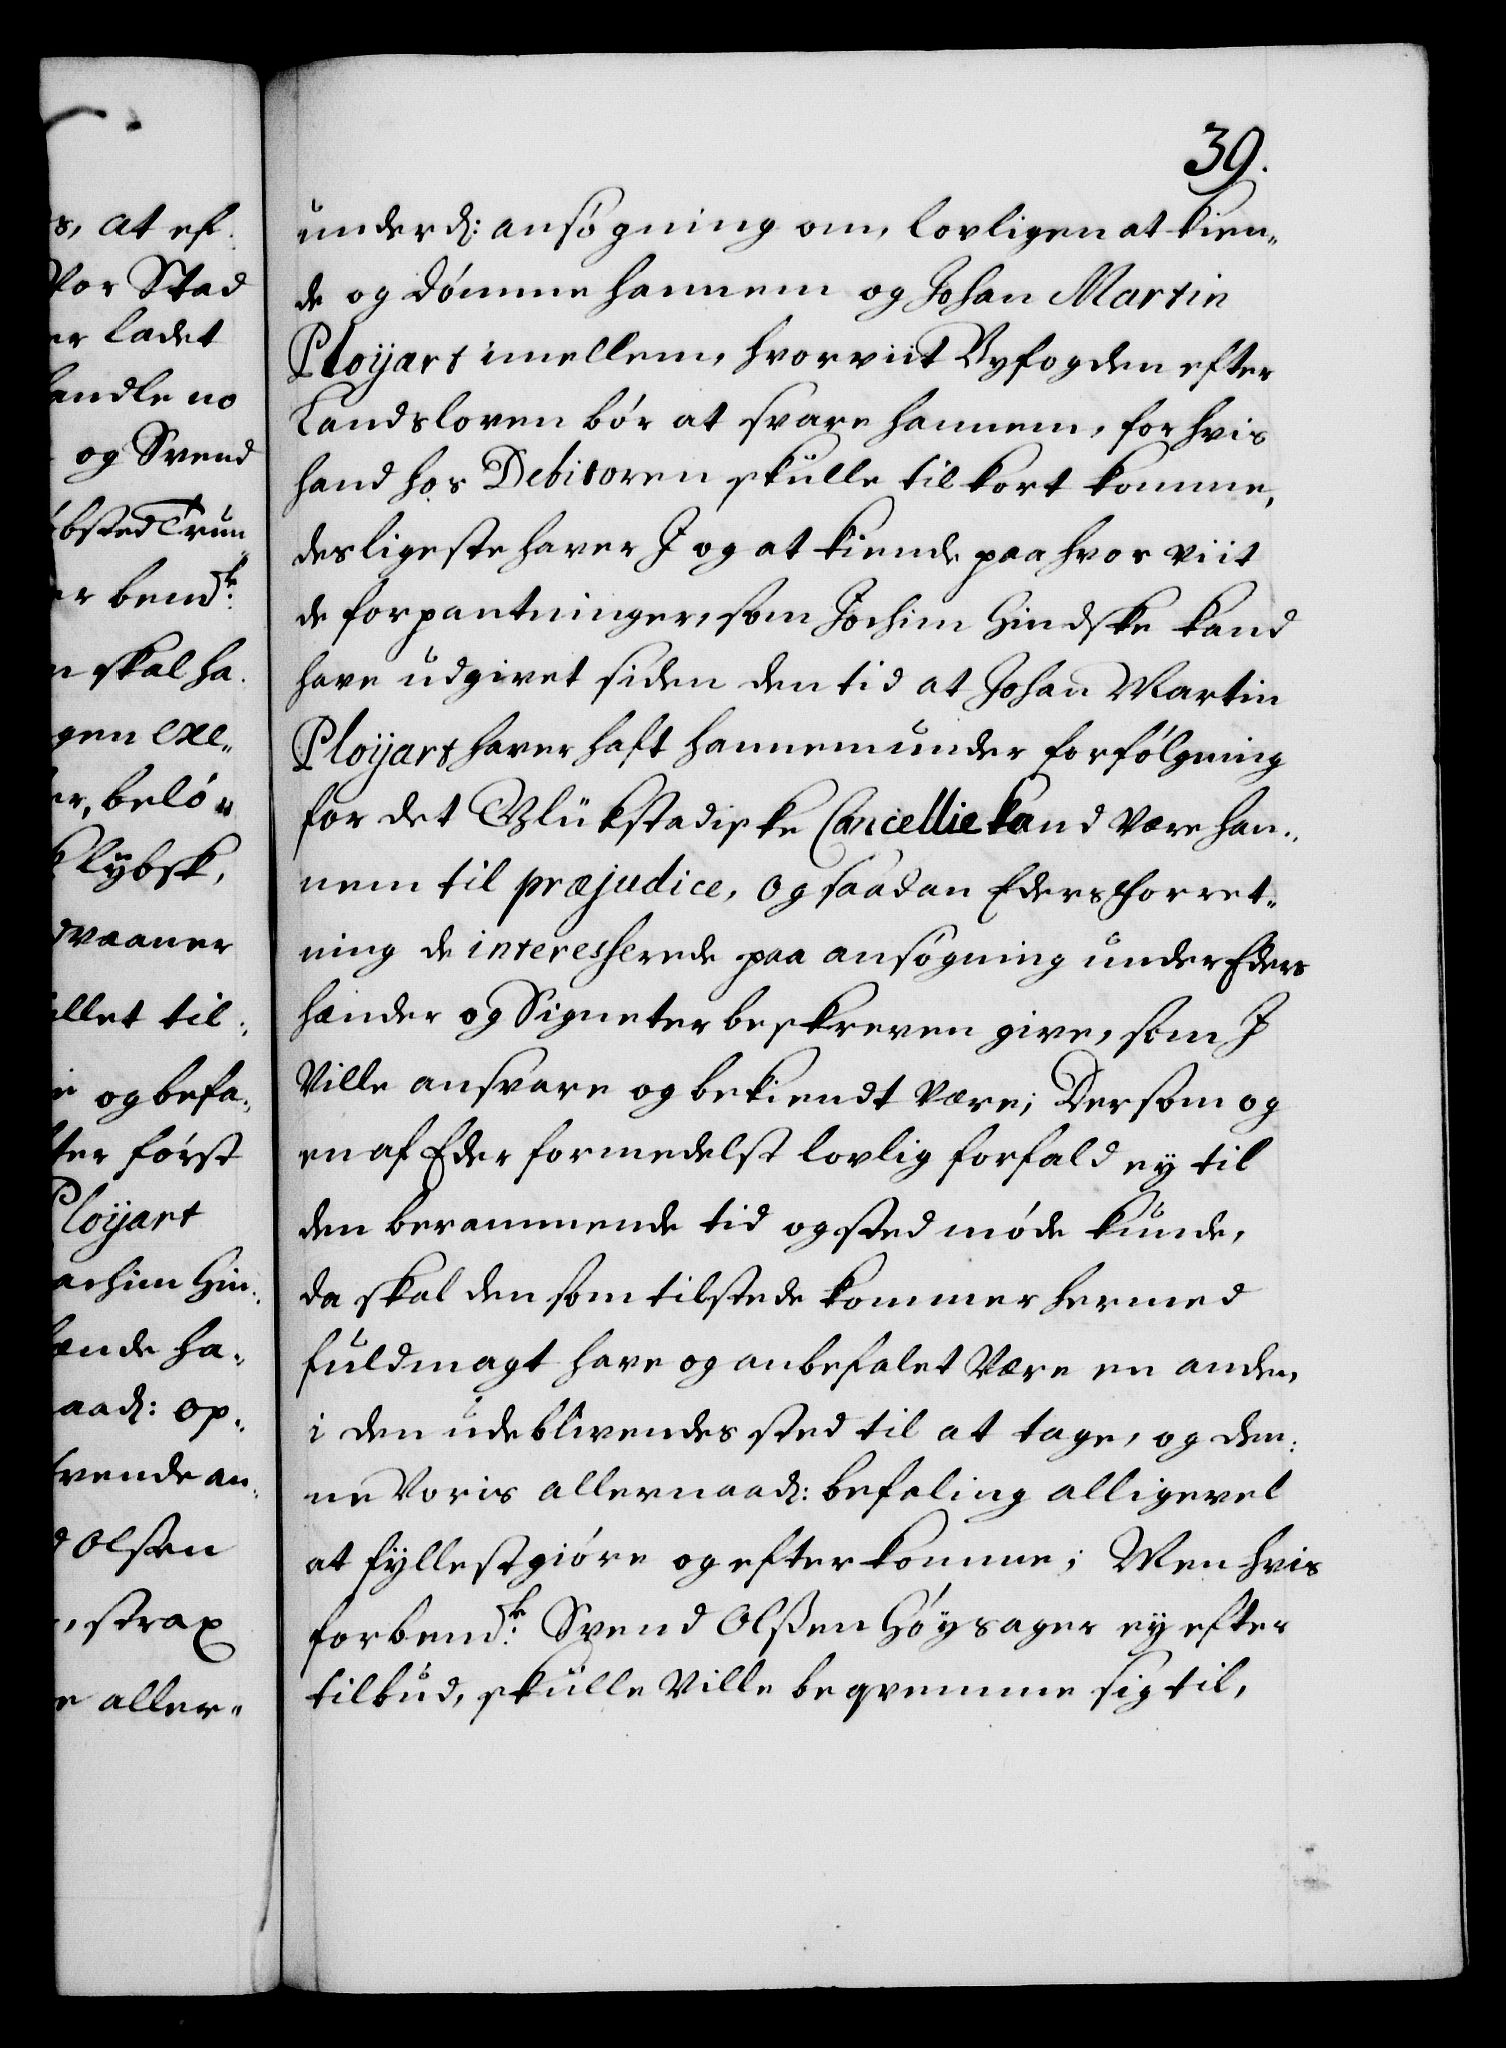 39.
underd: ansøgning om, lovligen at kien„
de og dømme hannem og Johan Martin
Ploÿart imellem, hvorviit Byfogden efter
Landsloven bør at svare hannem, for hvis
hand hos Debitoren skulle til kort komme,
desligeste haver I og at kiende paa hvor viit
de forpantninger, som Jochim Hindske kand
have udgivet siden den tid at Johan Martin
Ploÿart haver haft hannem under forfølgning
for det Glükstadiske Cancellie kand være han„
nem til præjudice, og saadan Eders forret„
ning de interesserede paa ansøgning under Eders
hænder og Signeter beskreven give, som I
Ville ansvare og bekiendt være; Dersom og
en af Eder formedelst lovlig forfald eÿ til
den berammende tid og sted møde kunde,
da skal den som tilstede kommer hermed
fuldmagt have og anbefalet være en anden,
i den udeblivendes sted til at tage, og den„
ne Voris allernaad: befaling alligevel
at fÿllestgiøre og efterkomme; Men hvis
forbend.te Svend Olßen Høÿsager eÿ efter
tilbud, skulle Ville beqvemme sig til,
s, at ef„
Vor Stad
er ladet
handle no
og Svend
bsted Trun„
er bend.te
n skal ha„
gen exe„
er, belø„
lÿbsk,
dvaaner
illet til„
og befa„
ter først
Ploÿart
achim Hin„
ende ha„
aad: op„
vende an„
d Olsen
, strax
e aller„